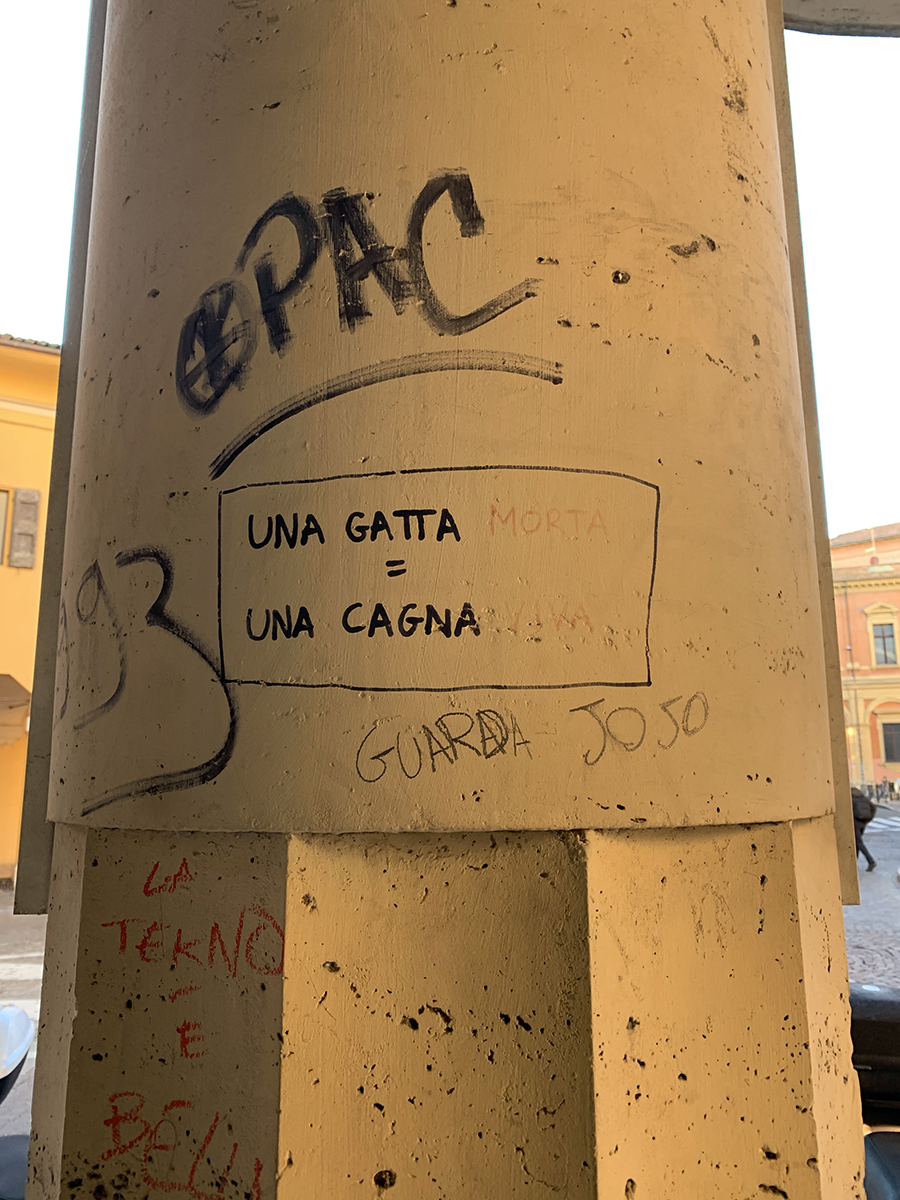 PAC
UNA GATTA MORTA
=
UNA CAGNA VIVA
GUARDA JOJO
LA
TEKNO
E